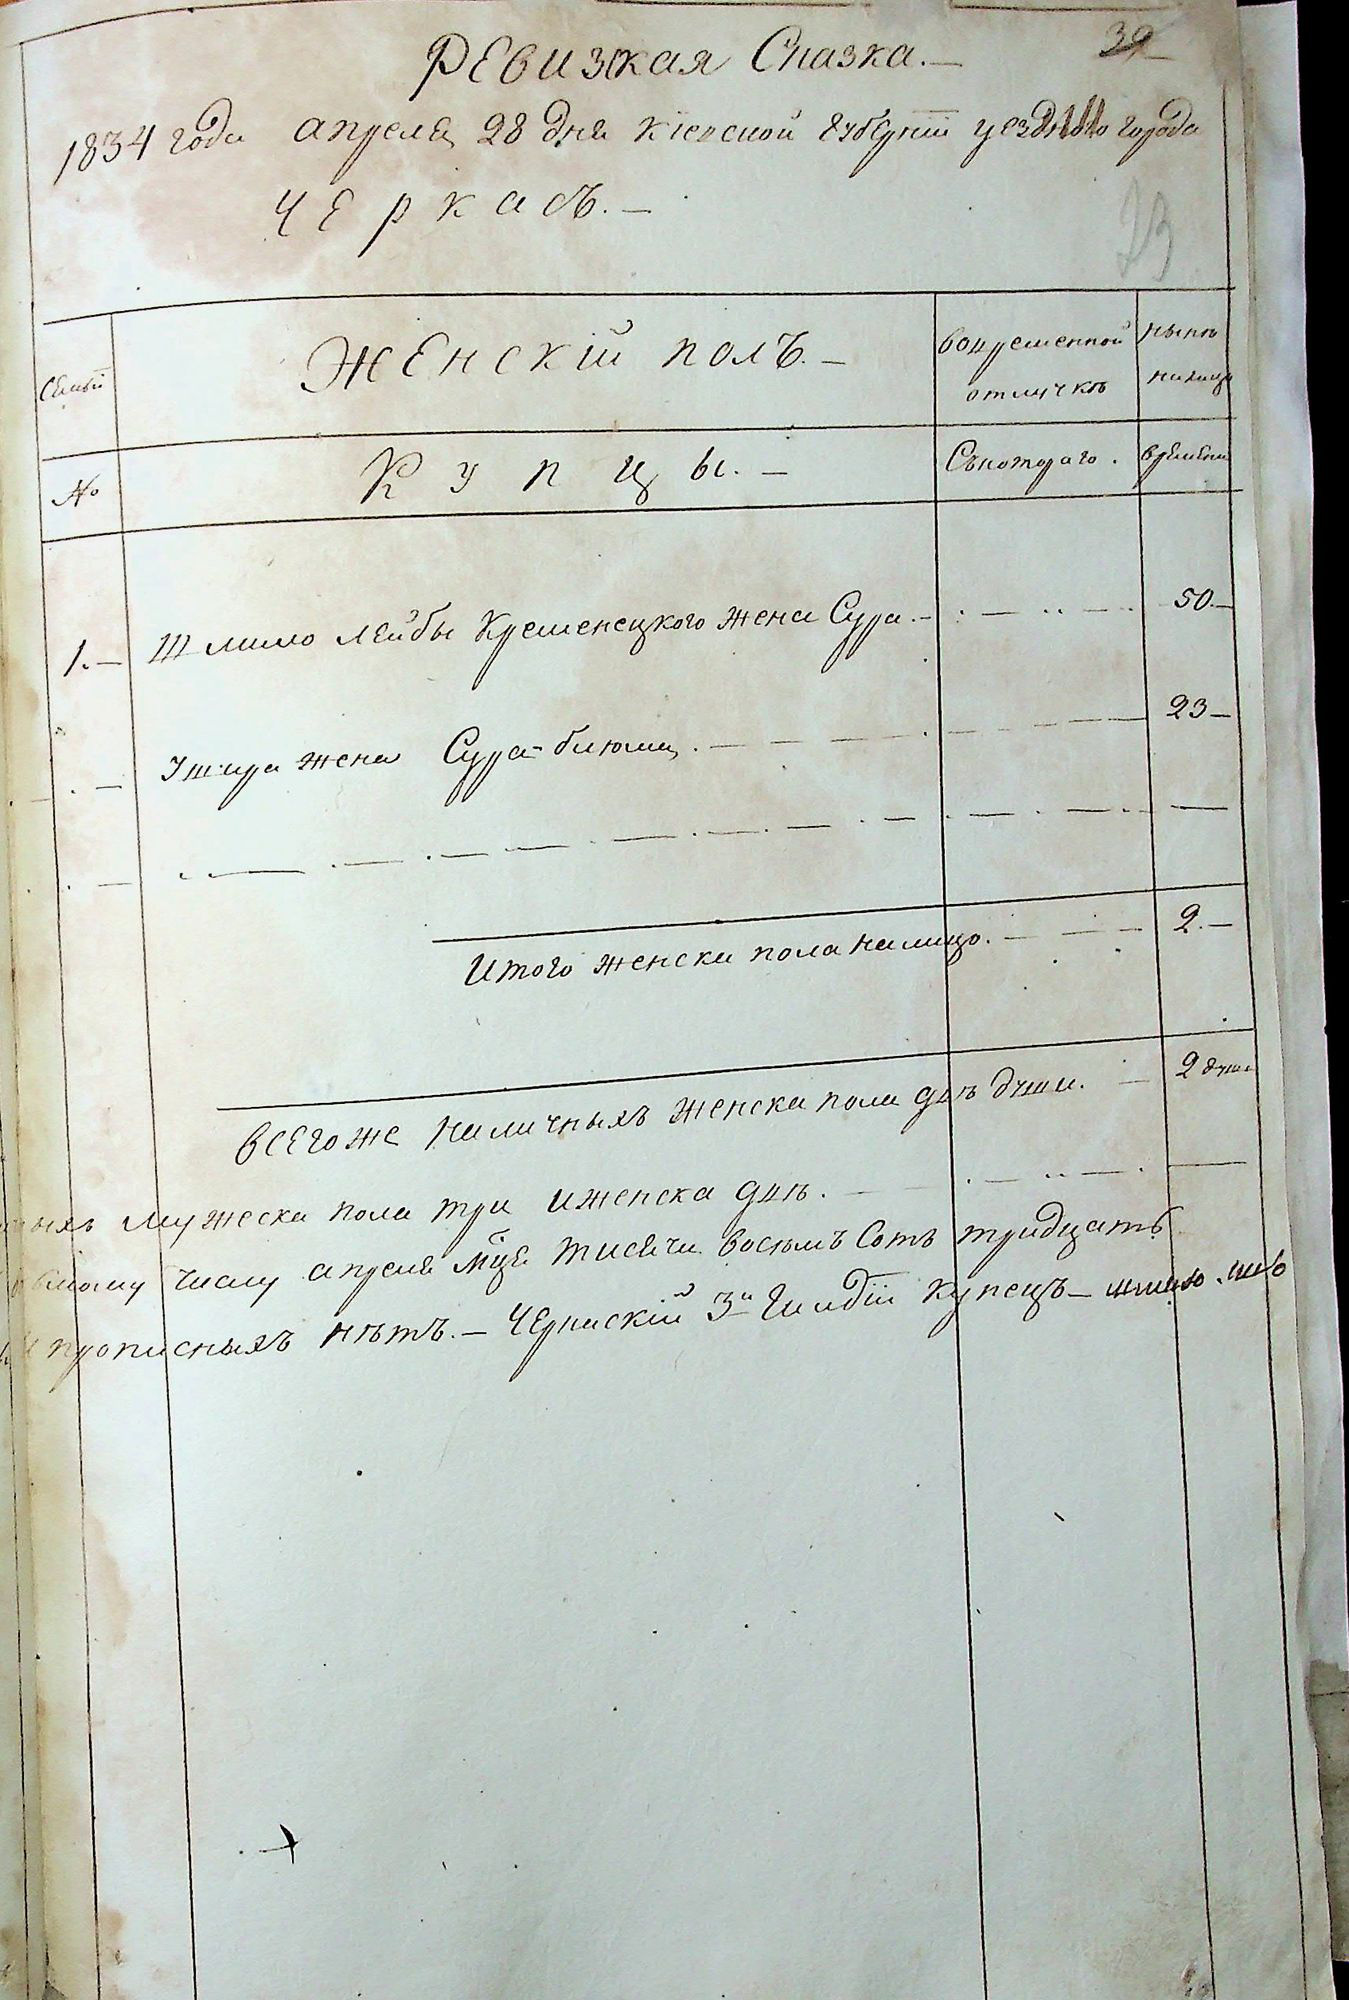 РЕвизкая Сказка.— 39
1834 года апреля 28 дня Киевской Губернии уезднаго города
ЧЕркасъ.—
23
Семьи ЖЕнскій полъ.— вовременной отлучкѣ ныне налицо
№ Купцы.— Съкотораго. времени
1.— Шлимо Лейбы Кременецкого жена Сура.— 50.—
Ушира жена Сура-блюма. 23—
Итого женска пола налицо. 2.—
всегоже наличныхъ женска пола двѣ души. 2 души
мужеска пола три иженска двѣ.
числу апреля мца тисячи восемъ Сотъ тридцать
прописныхъ нѣтъ.— ЧЕркаскій 3й Гилдіи купецъ—